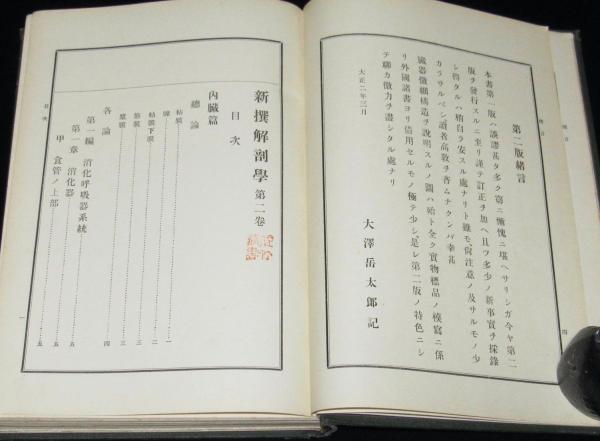 緒言
四
第二版緒言
本書第一版ハ誤謬甚タ多ク竊ニ慚愧ニ堪ヘサリシガ今ヤ第二
版ヲ發行スルニ至リ謹テ訂正ヲ加ヘ且ツ多少ノ新事實ヲ採錄
シ得タルハ稍自ラ安スル處ナリト雖モ、尙注意ノ及サルモノ少
カラサルベシ讀者高敎ヲ吝ムナクンバ幸甚
臟器微細構造ヲ說明スルノ圖ハ殆ト全ク實物標品ノ模寫ニ係
リ外國諸書ヨリ借用セルモノ極テ少シ、是レ第二版ノ特色ニシ
テ聊カ微力ヲ盡シタル處ナリ
大正二年三月
大澤岳太郞記
新撰解剖學 第二卷
目次
內臟篇
總論
粘膜 一
腺 二
粘膜下膜 三
筋膜 三
漿膜 三
各論 四
第一編 消化呼吸器系統 五
第一章 消化器 五
甲 食管ノ上部 五
目次
一